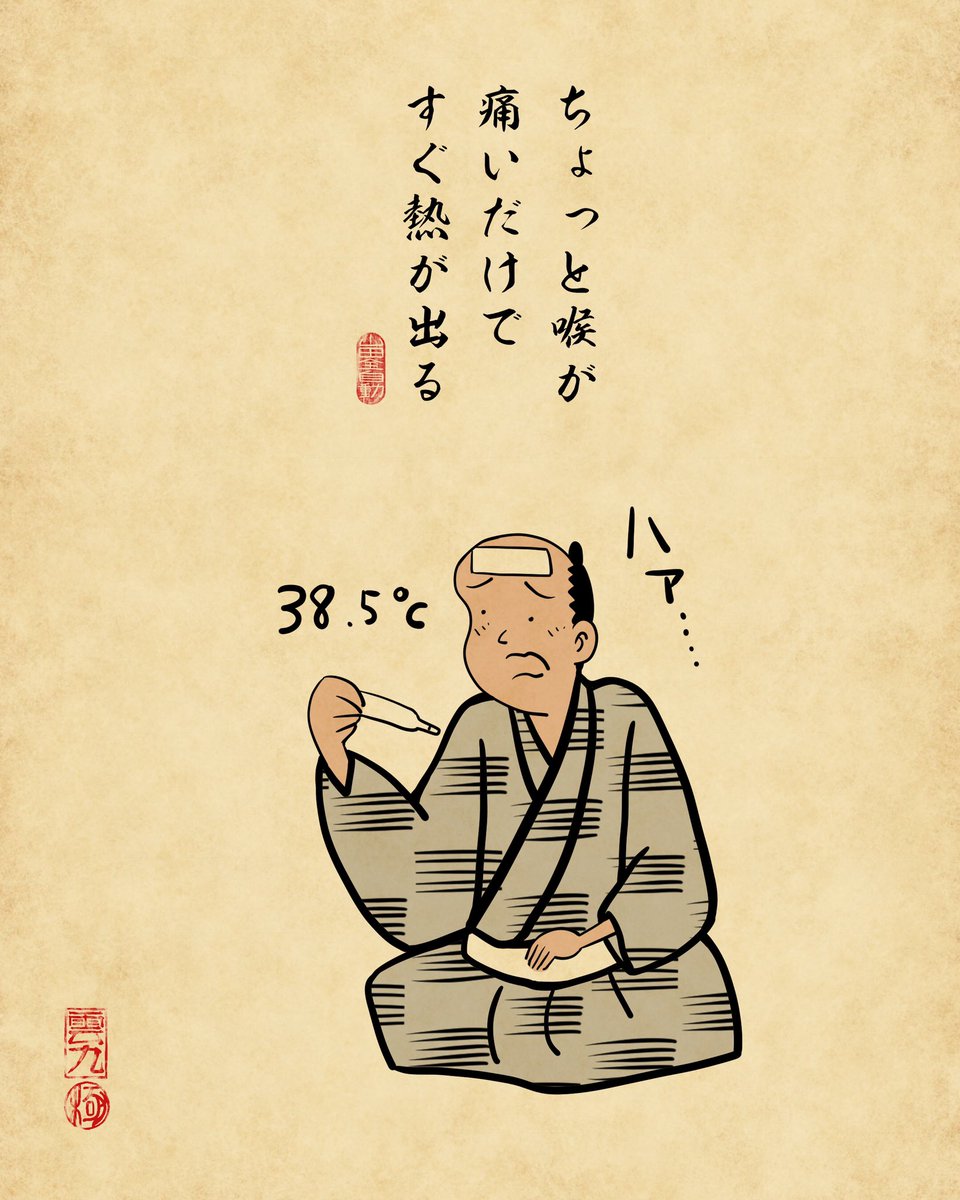 ちょっと喉が
痛いだけで
すぐ熱が出る
ハァ....
38.5℃